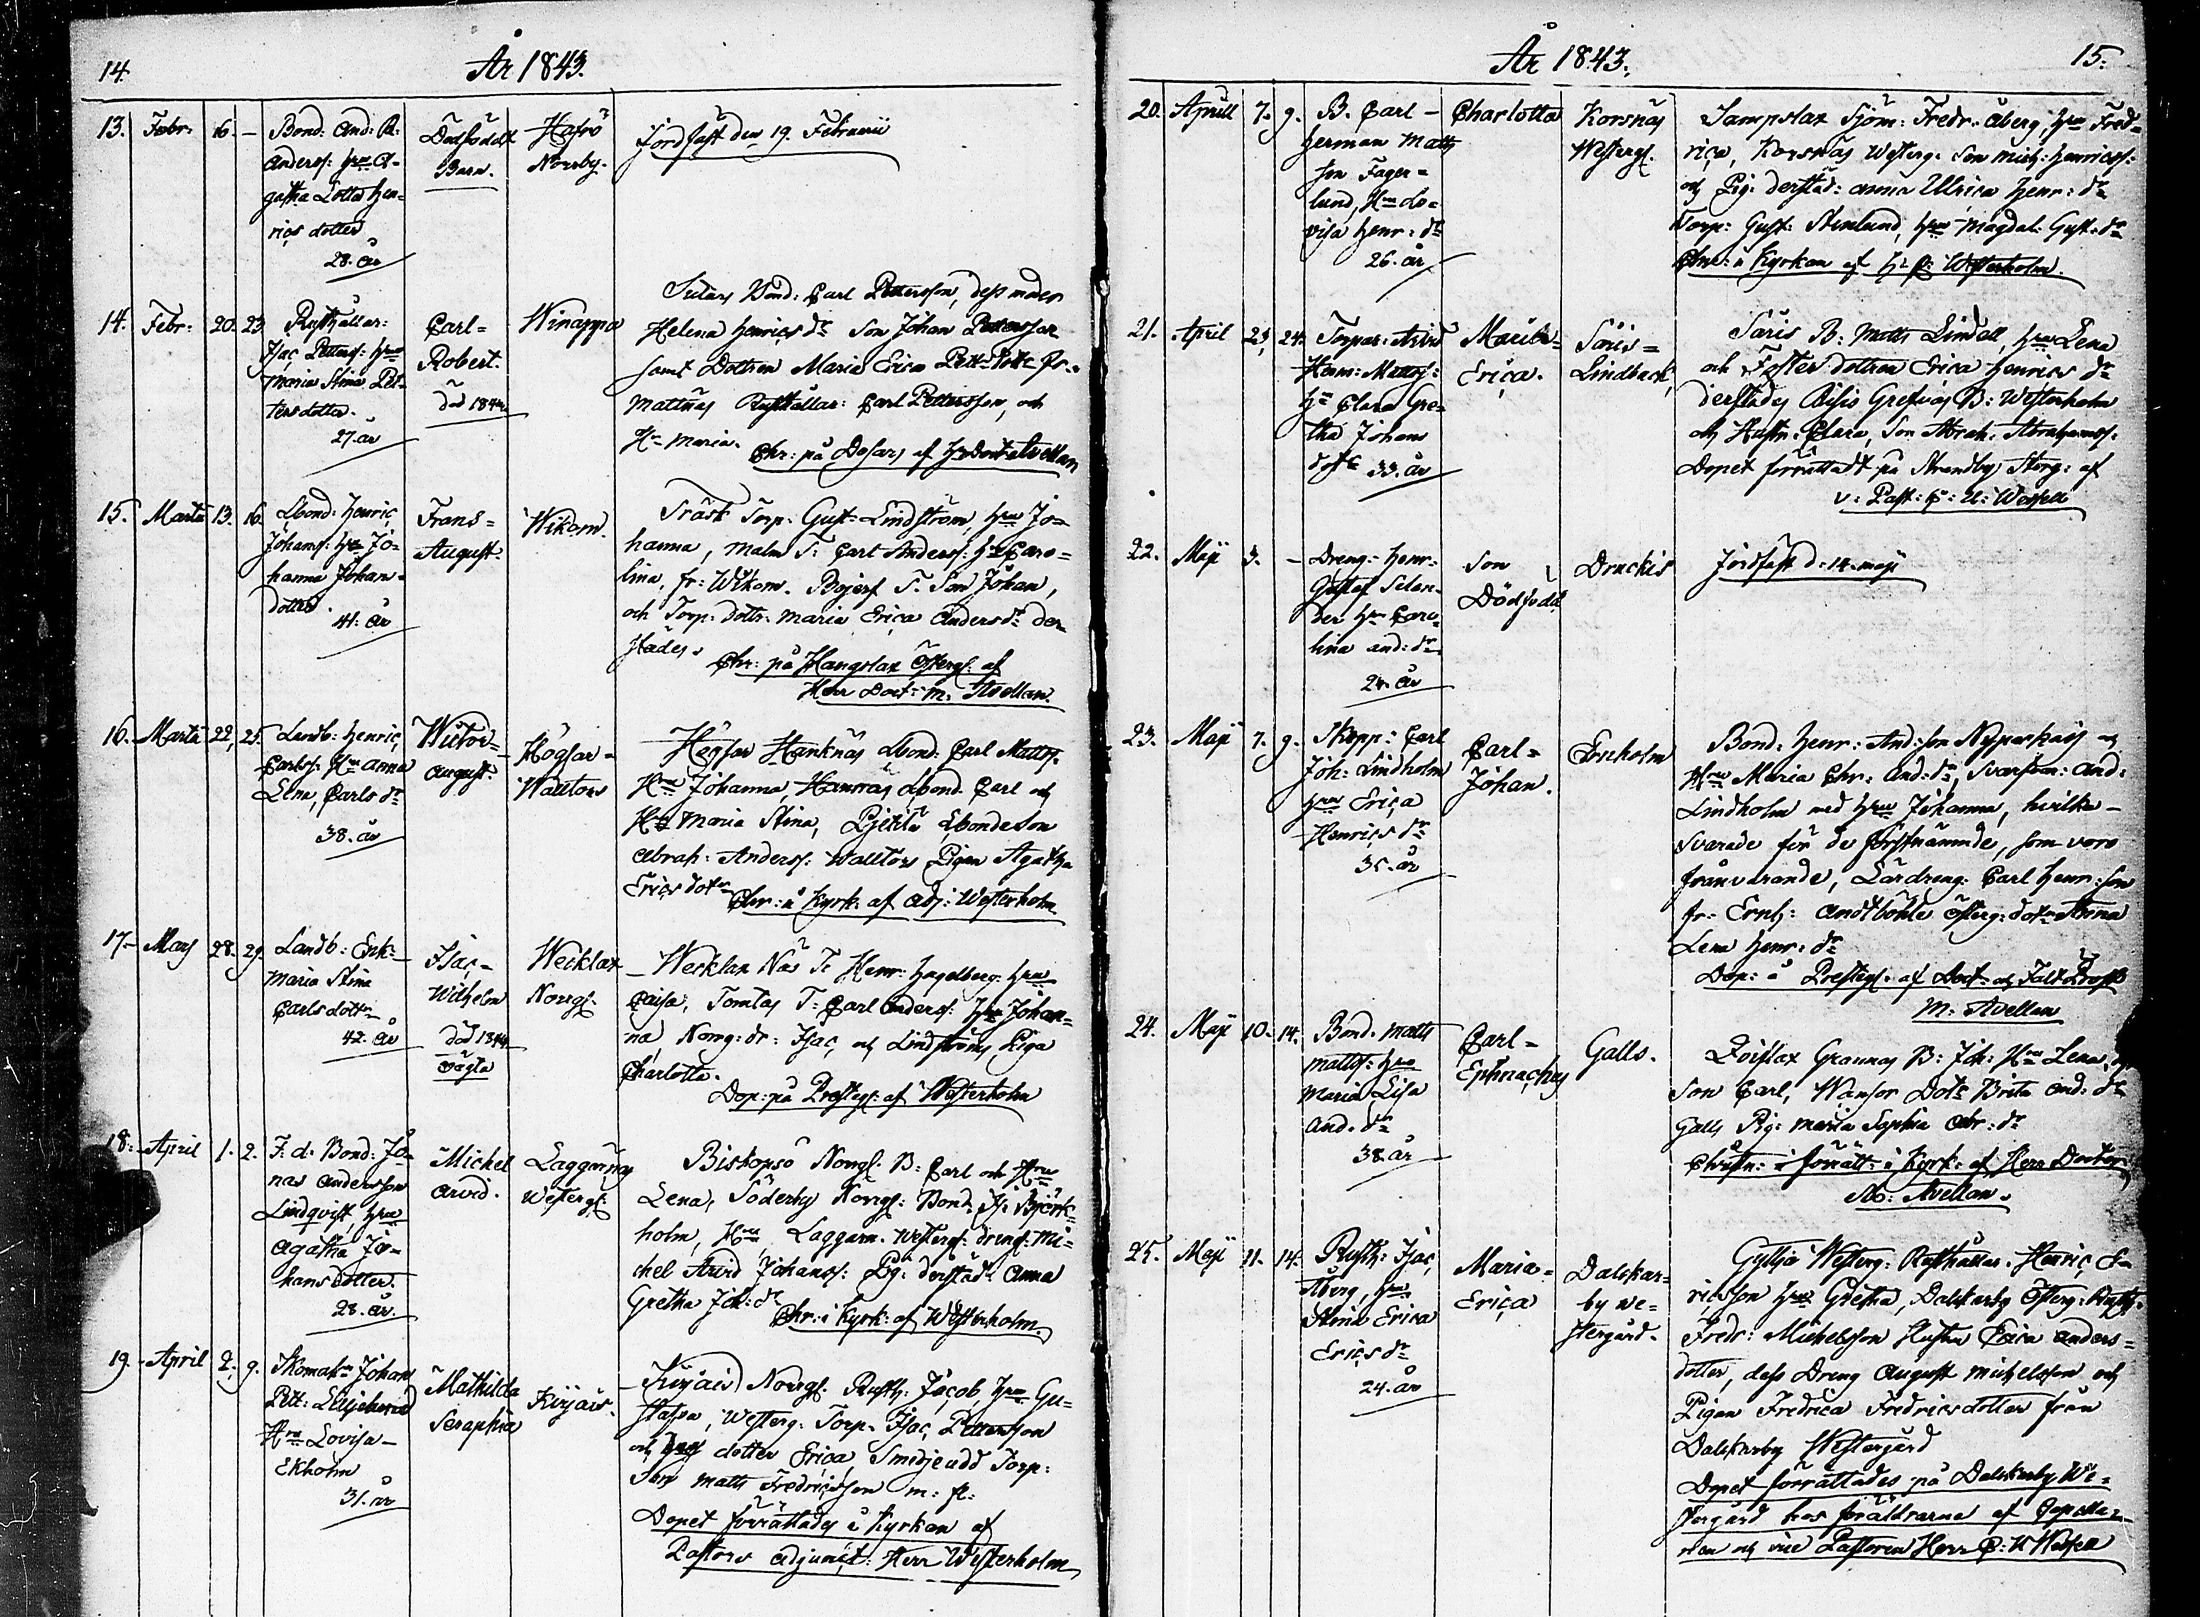 14.
År 1843.
13. Febr: 16. – Bond: And: R:
Anderss: Hru A-
gatha Lotta Hen-
rics dotter
28. år
Dödfödt
Barn.
Hafrö
Norrby.
Jordfäst den 19. Februarii
14. Febr: 20. 23. Rusthållar:
Isac Petterss: Hru
Maria Stina Pet-
ters dotter.
27. år
Carl =
Robert.
död 1844
Winappa
Bond: Carl Pettersson, dess moder
Helena Henrics dr Son Johan Pettersson
samt Dottren Maria Erica Pett: dottr fr.
Mattnäs Rusthållar: Carl Pettersson, och
Hu Maria.
Chr: på Dosars af Hr Doct: Avellan
15. Martii 13. 16. Lbond: Henric
Johanss: Hru Jo-
hanna Johan-
dotter.
41. år
Frans =
August.
Wikom.
Träsk Torp: Gust: Lindström, Hru Jo-
hanna, Malm T: Carl Anderss: Hru Caro=
lina, fr: Wikom. T. Son Johan,
och Torp: dottr: Maria Erica Anders dr der-
städes.
Chr: på Hangslax Österg: af
Herr Doct: M. Avellan.
16. Martii 22. 25. Landb: Henric
Carlss: Hru Anna
Lena, Carls dr
38. år
Wictor =
August.
Högsar =
Walltors
Högsar Hanknäs Lbond: Carl Matts.
Hru Johanna, Lbond: Carl och
Hru Maria Stina, Lbondeson
Abrah: Anderss: Walltors Pigan Agatha
Erics dotr
Chr: i Kyrk: af Adj: Westerholm
17. Mars 28. 29. Landb: Enk:
Maria Stina
Carls dottr
42. år
Isac =
Wilhelm
död 1844
oägta
Wecklax
Norrg:
Wecklax Näs T: Henr: Hagelberg: Hru
Caisa, Tomtas T: Carl Anderss: Hru Johan=
na Norrg: dr: Isac, och Lindströms Piga
Charlotta.
Dop: på Prestg: af Westerholm
18. April 1. 2. F. d. Bond: Jo-
nas Andersson
Lindqvist, Hru
Agatha Jo-
hans dotter
28. år.
Michel
Arvid.
Laggarnäs
Westergd
Biskopsö Norrg: B: Carl och Hru
Lena, Söderby Norrg: Bond: Is: Björk=
holm, Hru, Laggarn. Westerg: dreng: Mi=
chel Arvid Johanss: Pig: derstäd: Anna
Gretha Joh: dr
Chr: i Kyrk: af Westerholm.
19. April 2. 9. Skomakr Johan
Pett: Liljelund
Hru Lovisa
Ekholm
31. år
Mathilda
Seraphia
Kirjais.
Kirjais Norrg: Rusth: Jacob, Hru Gu=
stafva, Westerg: Torp: Isac Pettersson
och dotter Erica, Smidjeudd Torp:
Son Matts Fredricsson m: fl:
Dopet förrättades i Kyrkan af
Pastors Adjunct: Herr Westerholm
År 1843.
15.
20. Aprill 7. 9. B. Carl –
Herman Matts
son Fager=
lund, Hru Lo=
visa Henr: dr
26. år
Charlotta
Korsnäs
Westerg.
Sampslax Sjöm: Fredr: Åberg, Hru Fred=
rica, Korsnäs Westerg: Son Mich: Henricss:
och Pig: derstäd: Anna Ulrica Henr: dr
Torp: Gust: Stenlund, Hru Magdal: Gust: dr
Chr: i Kyrkan af Hr C: Westerholm.
21. April 23. 24. Torpar: Arvid
Herm: Mattss:
Hu Clara Gre-
tha Johans
dotr 33. år
Maria =
Erica.
Söris =
Lindback
Söris B: Matts Lindell, Hru Lena
och Foster dottren Erica Henrics dr
derstädes B: Westerholm
och Hustr: Clara, Son Abrah: Abrahamss:
Dopet förrättadt på Strandby Storg: af
v: Past: C: U: Wessell
22. Maji 3. – Dreng: Henr:
Gustaf Selan-
der Hru Caro=
lina And: dr
24. år
Son
Dödfödd
Druckis
Jordfäst d: 14 Maji
23. Maji 7. 9. Skepp: Carl
Joh: Lindholm
Hru Erica
Henrics dr
35. år
Carl =
Johan.
Enholm
Bond: Henr: And:son och
Hru Maria Chr: And: dr, Svarfvar: And:
Lindholm med Hru Johanna, hvilka
svarade för de förstnämnde, som voro
frånvarande, Lärdreng: Carl Henr:son
fr: Andtböhle Österg: dotr Anna
Lena Henr: dr
Dop: å Prestg: af Doct: och
M: Avellan
24. Maji 10. 14. Bond: Matts
Mattss: Hru
Maria Lisa
And: dr
38. år
Carl =
Ephraim
Galls.
Grannas B: Joh: Hru Lena,
Son Carl, Wansor Dotr Brita And: dr
Galls Pig: Maria Sophia Abr: dr
Christn: förrätt: i Kyrk: af Herr Doctor
M: Avellan.
25. Maji 11. 14. Rusth: Isac
Åberg, Hru
Stina Erica
Erics dr
24. år
Maria =
Erica
Dalskar=
by We=
stergård.
Gyttja Westerg: Rusthållar: Henric E-
ricsson Hru Gretha, Dalskarby Österg: Rusth:
Fredr: Michelsson Hustru Erica Anders=
dotter, dess Dreng August Michelsson och
Pigan Fredrica Fredricsdotter från
Dalskarby Westergård
Dopet förrättades på Dalskarby We=
stergård hos föräldrarne af Capella=
nen och vice Pastoren Herr C: U Wessell